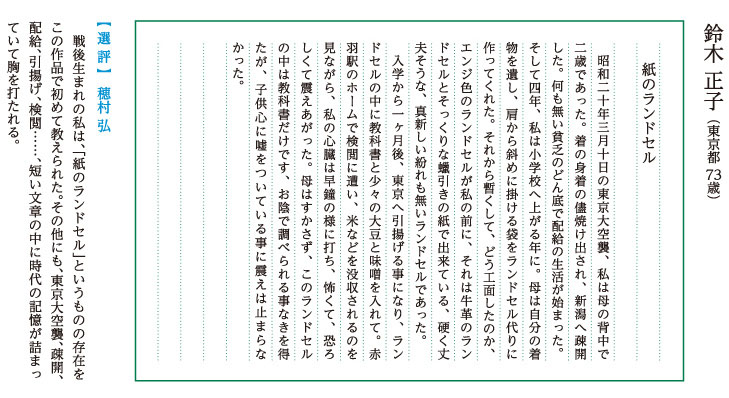 鈴木 正子（東京都 73歳）
紙のランドセル
昭和二十年三月十日の東京大空襲、私は母の背中で
二歳であった。着の身着の儘焼け出され、新潟へ疎開
した。何も無い貧乏のどん底で配給の生活が始まった。
そして四年、私は小学校へ上がる年に。母は自分の着
物を遺し、肩から斜めに掛ける袋をランドセル代りに
作ってくれた。それから暫くして、どう工面したのか、
エンジ色のランドセルが私の前に、それは牛革のラン
ドセルとそっくりな蠟引きの紙で出来ている、硬く丈
夫そうな、真新しい紛れも無いランドセルであった。
入学から一ヶ月後、東京へ引揚げる事になり、ラン
ドセルの中に教科書と少々の大豆と味噌を入れて。赤
羽駅のホームで検閲に遭い、米などを没収されるのを
見ながら、私の心臓は早鐘の様に打ち、怖くて、恐ろ
しくて震えあがった。母はすかさず、このランドセル
の中は教科書だけです、お陰で調べられる事なきを得
たが、子供心に嘘をついている事に震えは止まらな
かった。
【選評】穂村 弘
戦後生まれの私は、「紙のランドセル」というものの存在を
この作品で初めて教えられた。その他にも、東京大空襲、疎開、
配給、引揚げ、検閲……、短い文章の中に時代の記憶が詰まっ
ていて胸を打たれる。